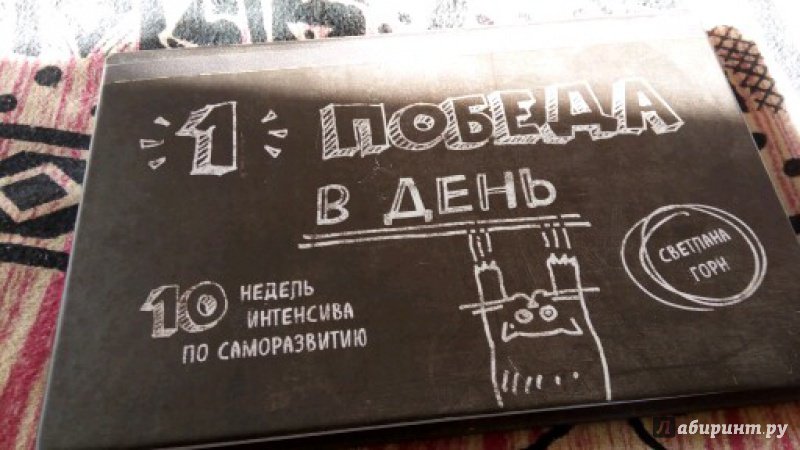 1 ПОБЕДА
В ДЕНЬ
10 НЕДЕЛЬ
ИНТЕНСИВА
ПО САМОРАЗВИТИЮ
СВЕТЛАНА
ГОРН
Лабиринт.ру